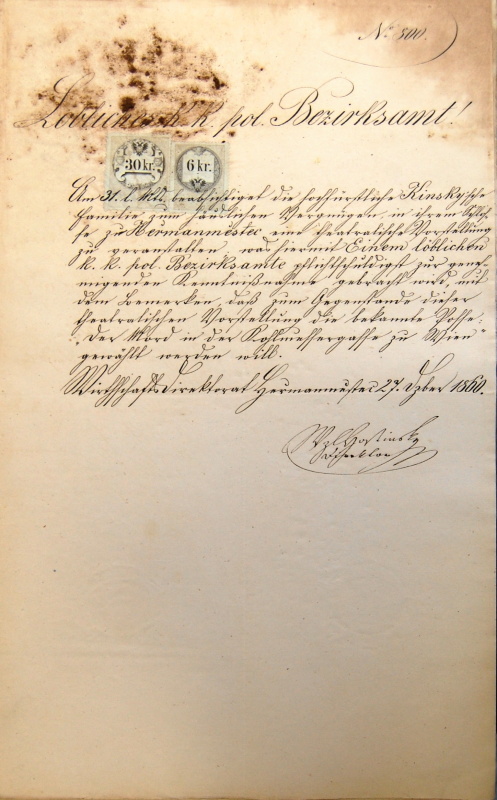 No 500.
Löbliches k. k. pol. Bezirksamt!
30 kr.
6 kr.
Am 31. l. Mts. beabsichtiget die hochfürstliche Kinskysche
Familie zum Vergnügen, in ihrem Schlo-
ße zu Hermanmestec eine theatralische Vorstellung
zu veranstalten, was hiermit Einem löblichen
k. k. pol. Bezirksamte pflichtschuldigst zur geneh-
migenden Kenntnißnahme gebracht wird, mit
dem Bemerken, daß zum Gegenstand dieser
theatralischen Vorstellung die bekannte Posse:
„Der Mord in der Kohlmessergasse zu Wien“
gewählt werden will.
Wirthschafts Direktorat Hermanmestec 27. Xber 1860.
Direktor